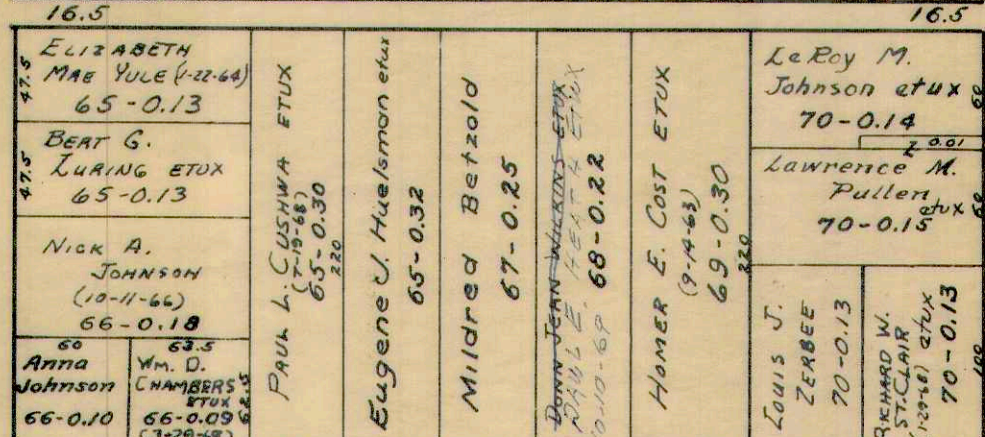 16.5
16.5
47.5
ELIZABETH
MAE YULE (1-22-64)
65-0.13
47.5
BERT G.
LURING ETUX
65-0.13
NICK A.
JOHNSON
(10-11-66)
66-0.18
60
Anna
Johnson
66-0.10
63.5
WM. D.
CHAMBERS
ETUX
66-0.09
62.5
PAUL L. CUSHWA ETUX
(7-19-68)
65-0.30
220
Eugene J. Huelsman etux
65-0.32
Mildred Betzold
67-0.25
DONN JEAN WILKINS ETUX
PAUL E. ETUX
68-0.22
HOMER E. COST ETUX
(9-14-63)
69-0.30
220
LeRoy M.
Johnson etux
70-0.14
60
0.01
Lawrence M.
Pullen
etux
70-0.15
60
LOUIS J.
ZERBEE
70-0.13
RICHARD W.
ST. CLAIR
etux
70-0.13
100